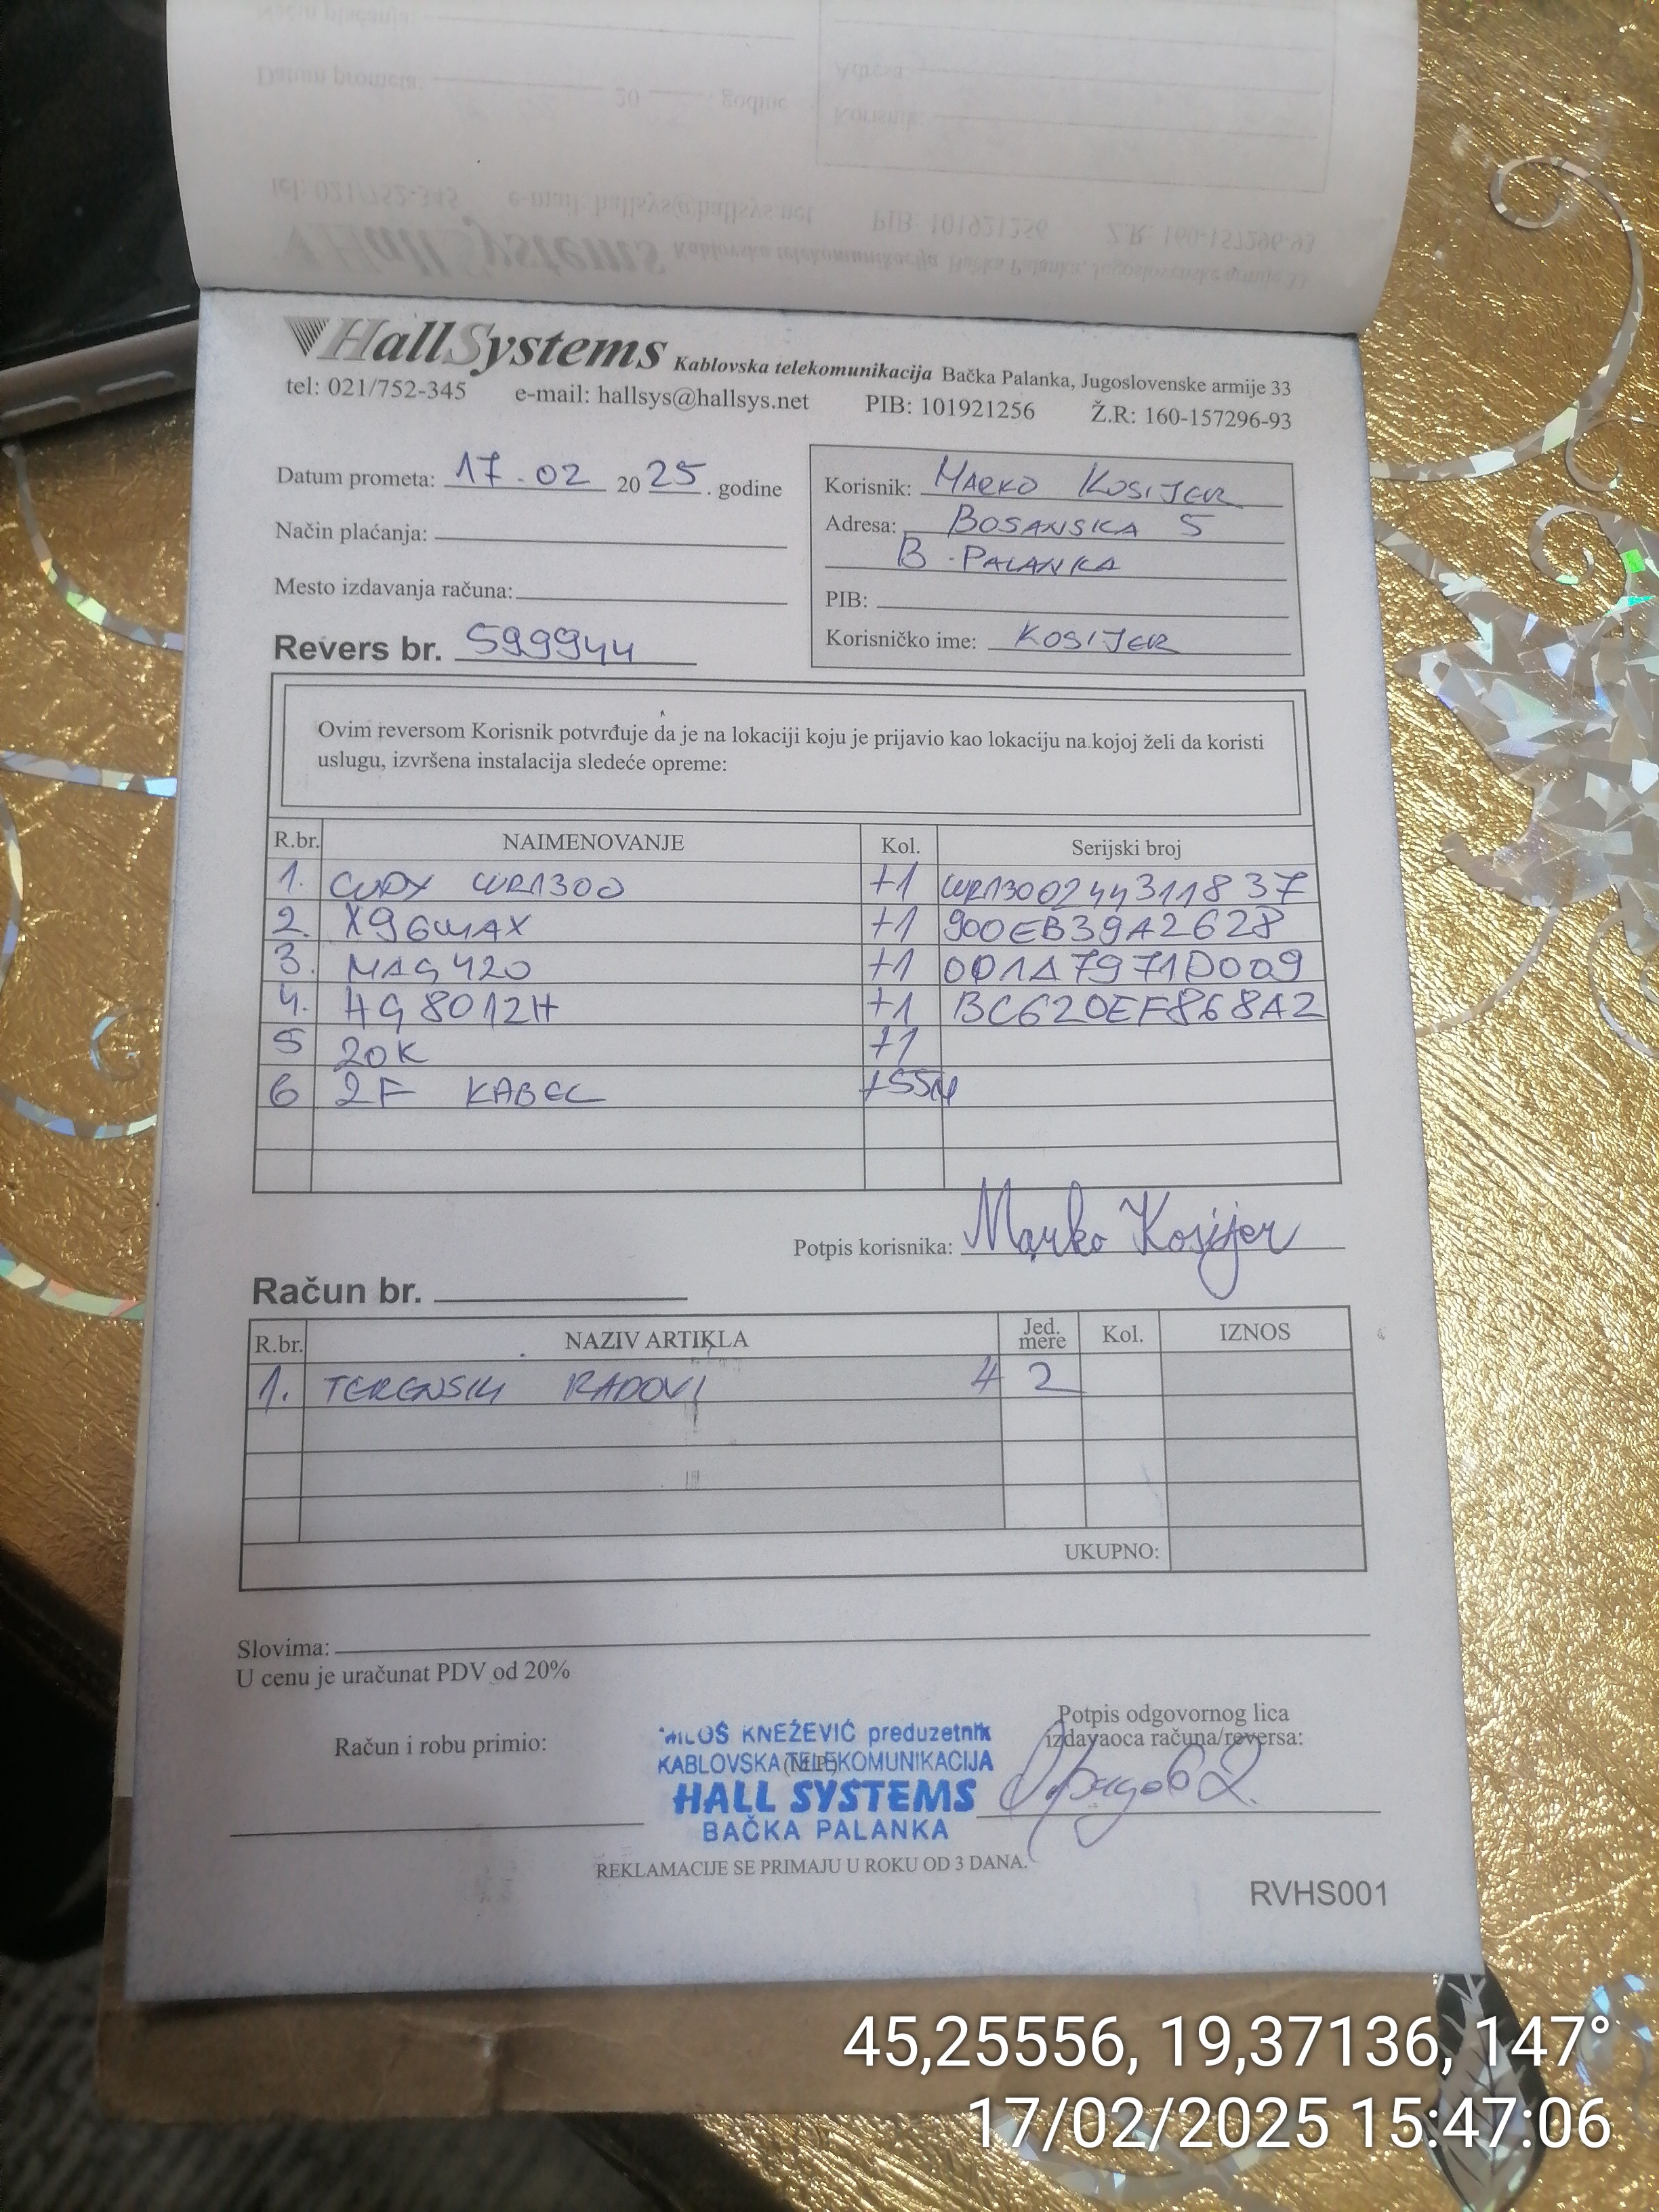 HallSystems Kablovska telekomunikacija Bačka Palanka, Jugoslovenske armije 33
tel: 021/752-345 e-mail: hallsys@hallsys.net PIB: 101921256 Ž.R: 160-157296-93
Datum prometa: 17.02 2025. godine
Način plaćanja:
Mesto izdavanja računa:
Revers br. 599944
Korisnik: MARKO KOSIJER
Adresa: BOSANSKA 5
B. PALANKA
PIB:
Korisničko ime: KOSIJER
Ovim reversom Korisnik potvrđuje da je na lokaciji koju je prijavio kao lokaciju na kojoj želi da koristi
uslugu, izvršena instalacija sledeće opreme:
R.br. NAIMENOVANJE Kol. Serijski broj
1. CUDY WR1300 +1 WR1300244311837
2. X96MAX +1 900EB39A2628
3. MAG420 +1 001A7971D009
4. HG8012H +1 BC620EF868A2
5 20K +1
6 2F KABEL +55M
Potpis korisnika: Marko Kosijer
Račun br.
R.br. NAZIV ARTIKLA Jed. mere Kol. IZNOS
1. TERENSKI RADOVI 4 2
UKUPNO:
Slovima:
U cenu je uračunat PDV od 20%
Račun i robu primio:
MILOŠ KNEŽEVIĆ preduzetnik
KABLOVSKA TELEKOMUNIKACIJA
(M.P.)
HALL SYSTEMS
BAČKA PALANKA
Potpis odgovornog lica
izdavaoca računa/reversa:
REKLAMACIJE SE PRIMAJU U ROKU OD 3 DANA.
RVHS001
45,25556, 19,37136, 147°
17/02/2025 15:47:06